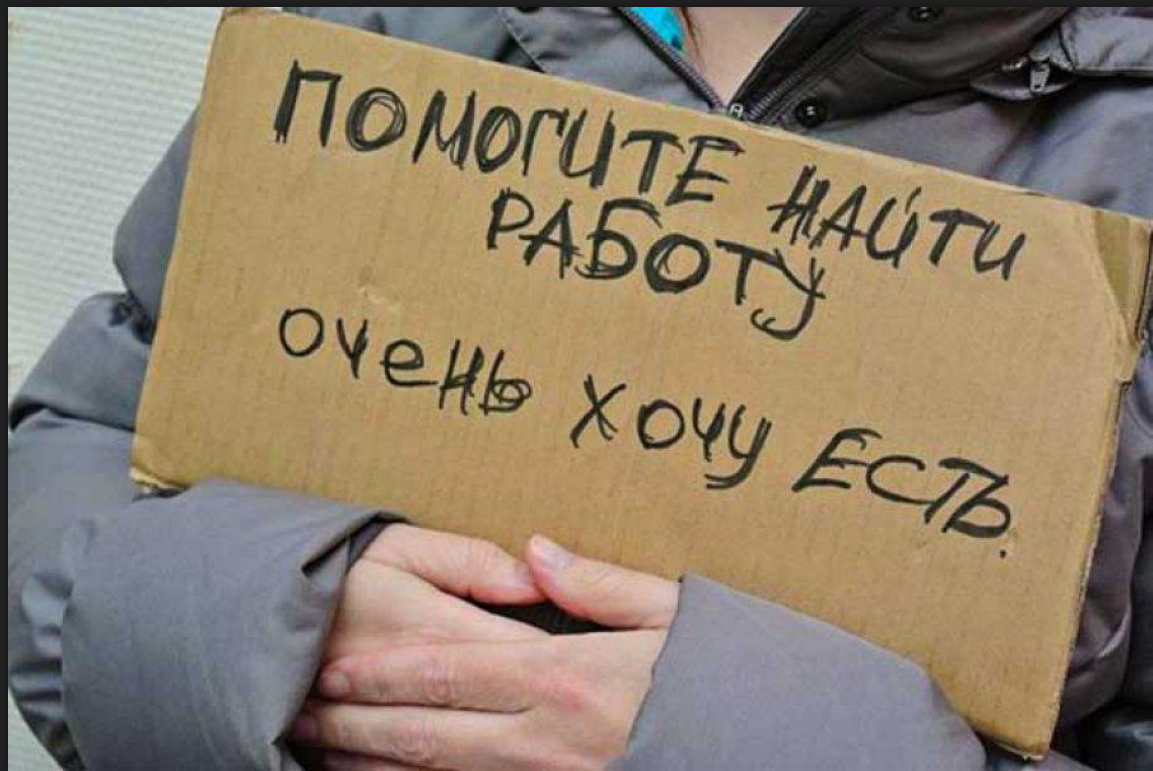 ПОМОГИТЕ НАЙТИ
РАБОТУ
очень хочу ЕСТЬ.